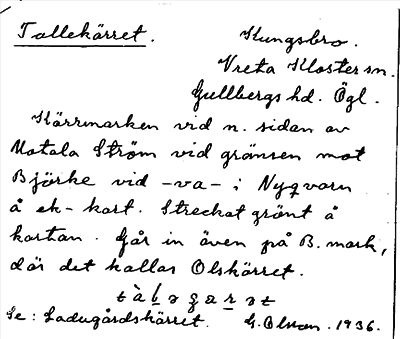 Tallekärret.
Kungsbro.
Vreta Kloster sn.
Gullbergs hd. Ögl.
Kärrmarken vid n. sidan av
Motala Ström vid gränsen mot
Björke vid -va- i Nyqvarn
å ek-kart. Streckat grönt å
kartan. Går in även på B. mark,
där det kallas Olskärret.
tàlaɡarət
Se: Ladugårdskärret. G. Olsson. 1936.